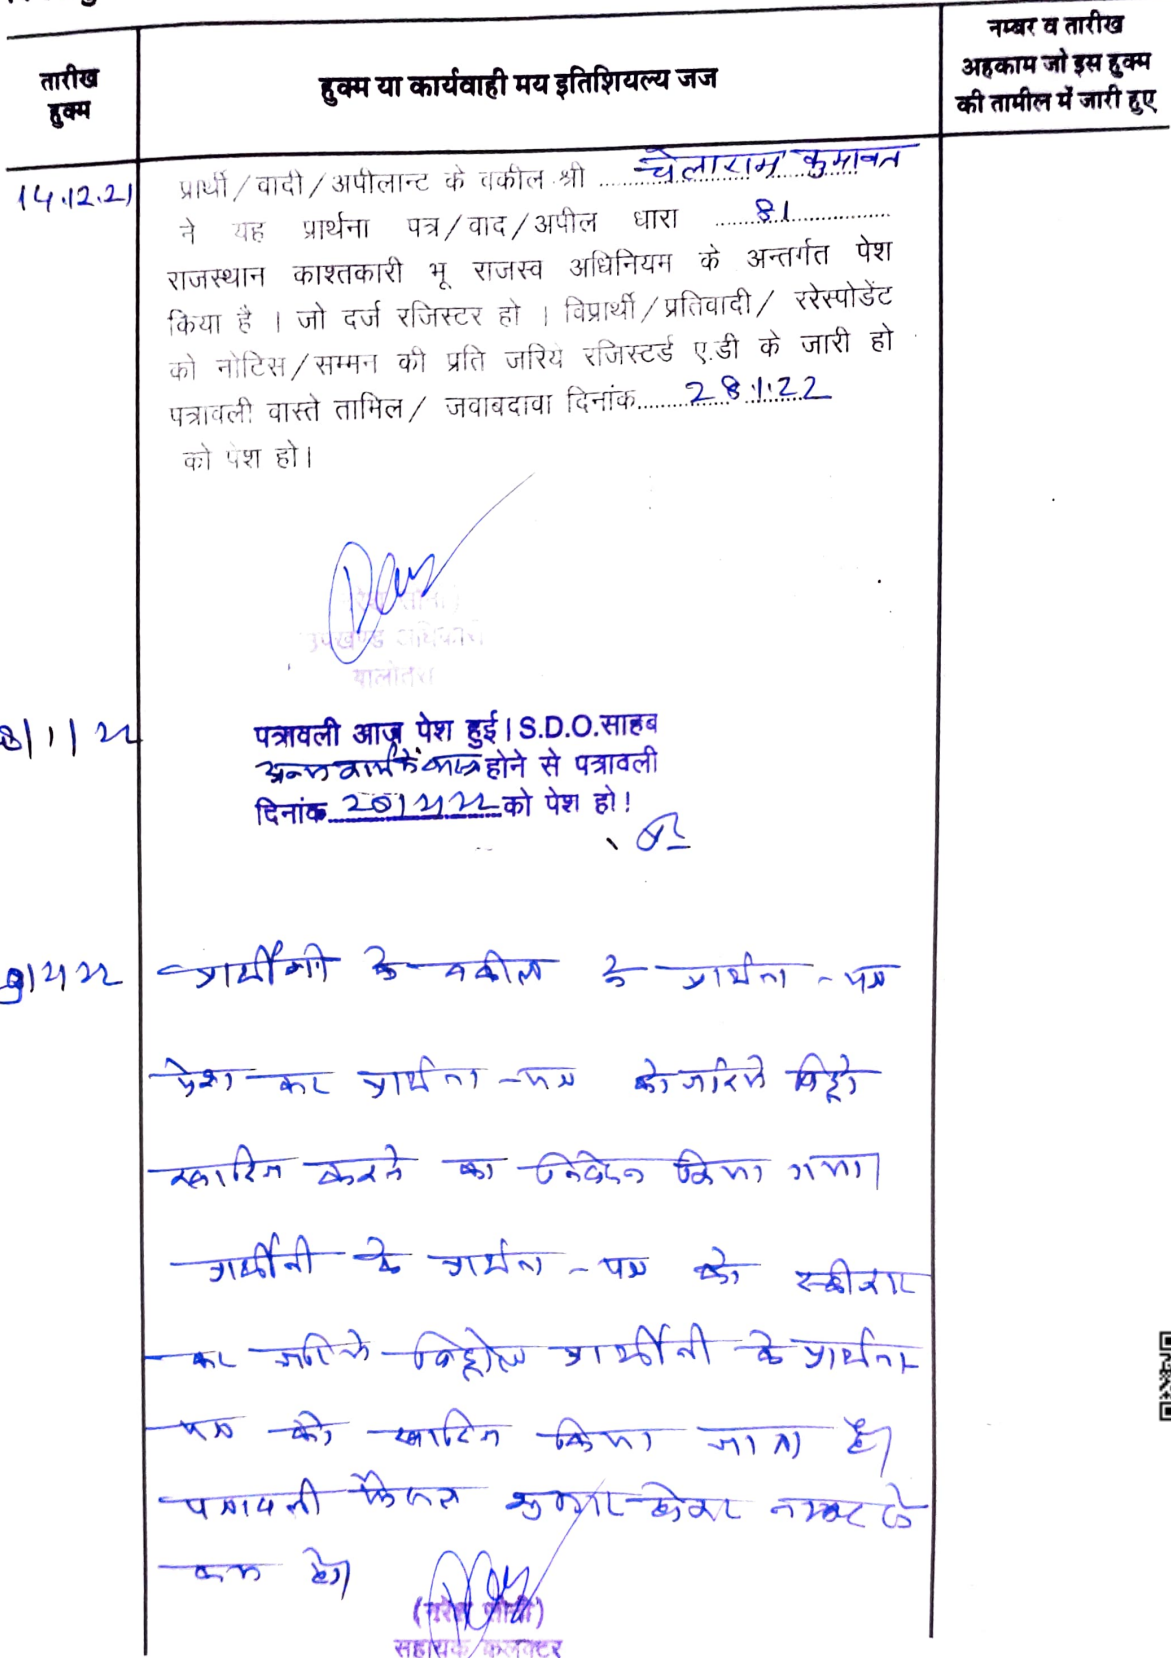 तारीख
हुक्म
हुक्म या कार्यवाही मय इतिशियल्य जज
नम्बर व तारीख
अहकाम जो इस हुक्म
की तामील में जारी हुए
14.12.21
प्रार्थी/वादी/अपीलान्ट के वकील श्री ....चेलाराम कुमावत
ने यह प्रार्थना पत्र/वाद/अपील धारा ....81....
राजस्थान काश्तकारी भू राजस्व अधिनियम के अन्तर्गत पेश
किया है । जो दर्ज रजिस्टर हो । विप्रार्थी/प्रतिवादी/ ररेस्पोडेंट
को नोटिस/सम्मन की प्रति जरिये रजिस्टर्ड ए.डी के जारी हो
पत्रावली वास्ते तामिल/ जवाबदावा दिनांक....28.1.22
को पेश हो।
उपखण्ड अधिकारी
बालोतरा
8/1/22
पत्रावली आज पेश हुई। S.D.O.साहब
अन्य कार्य में व्यस्त होने से पत्रावली
दिनांक को पेश हो!
के वकील ने प्रार्थना-पत्र
पेश कर प्रार्थना-पत्र को जरिये विड्रो
खारिज करने का निवेदन किया गया।
प्रार्थीनी के प्रार्थना-पत्र को स्वीकार
कर जरिये विड्रोल प्रार्थीनी के प्रार्थना
पत्र को खारिज किया जाता है।
पत्रावली फैसल शुमार होकर नम्बर से
कम हो।
सहायक कलक्टर